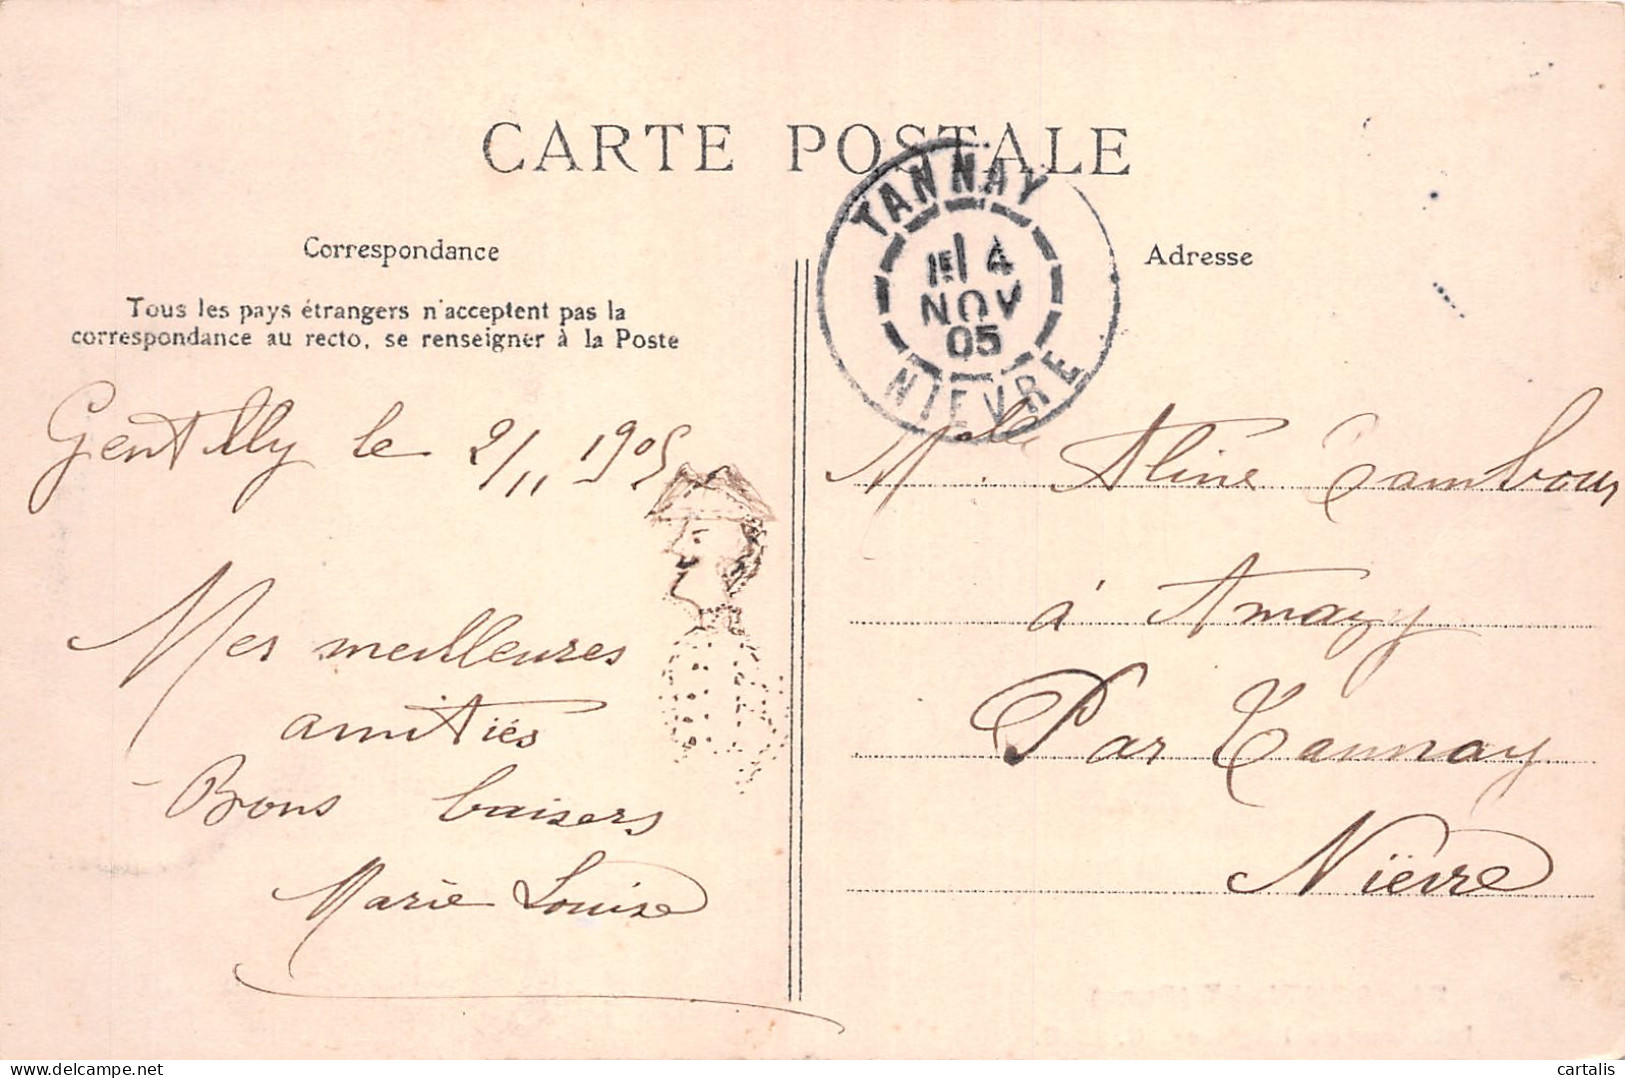 CARTE POSTALE
Correspondance
Tous les pays étrangers n'acceptent pas la
correspondance au recto, se renseigner à la Poste
Gentilly le 2/11 1905
Mes meilleures
amitiés
Bons baisers
Marie Louise
TANNAY
4
NOV
05
NIEVRE
Adresse
Melle Aline Tambour
à Amazy
Par Tannay
Nièvre
delcampe.net
cartalis